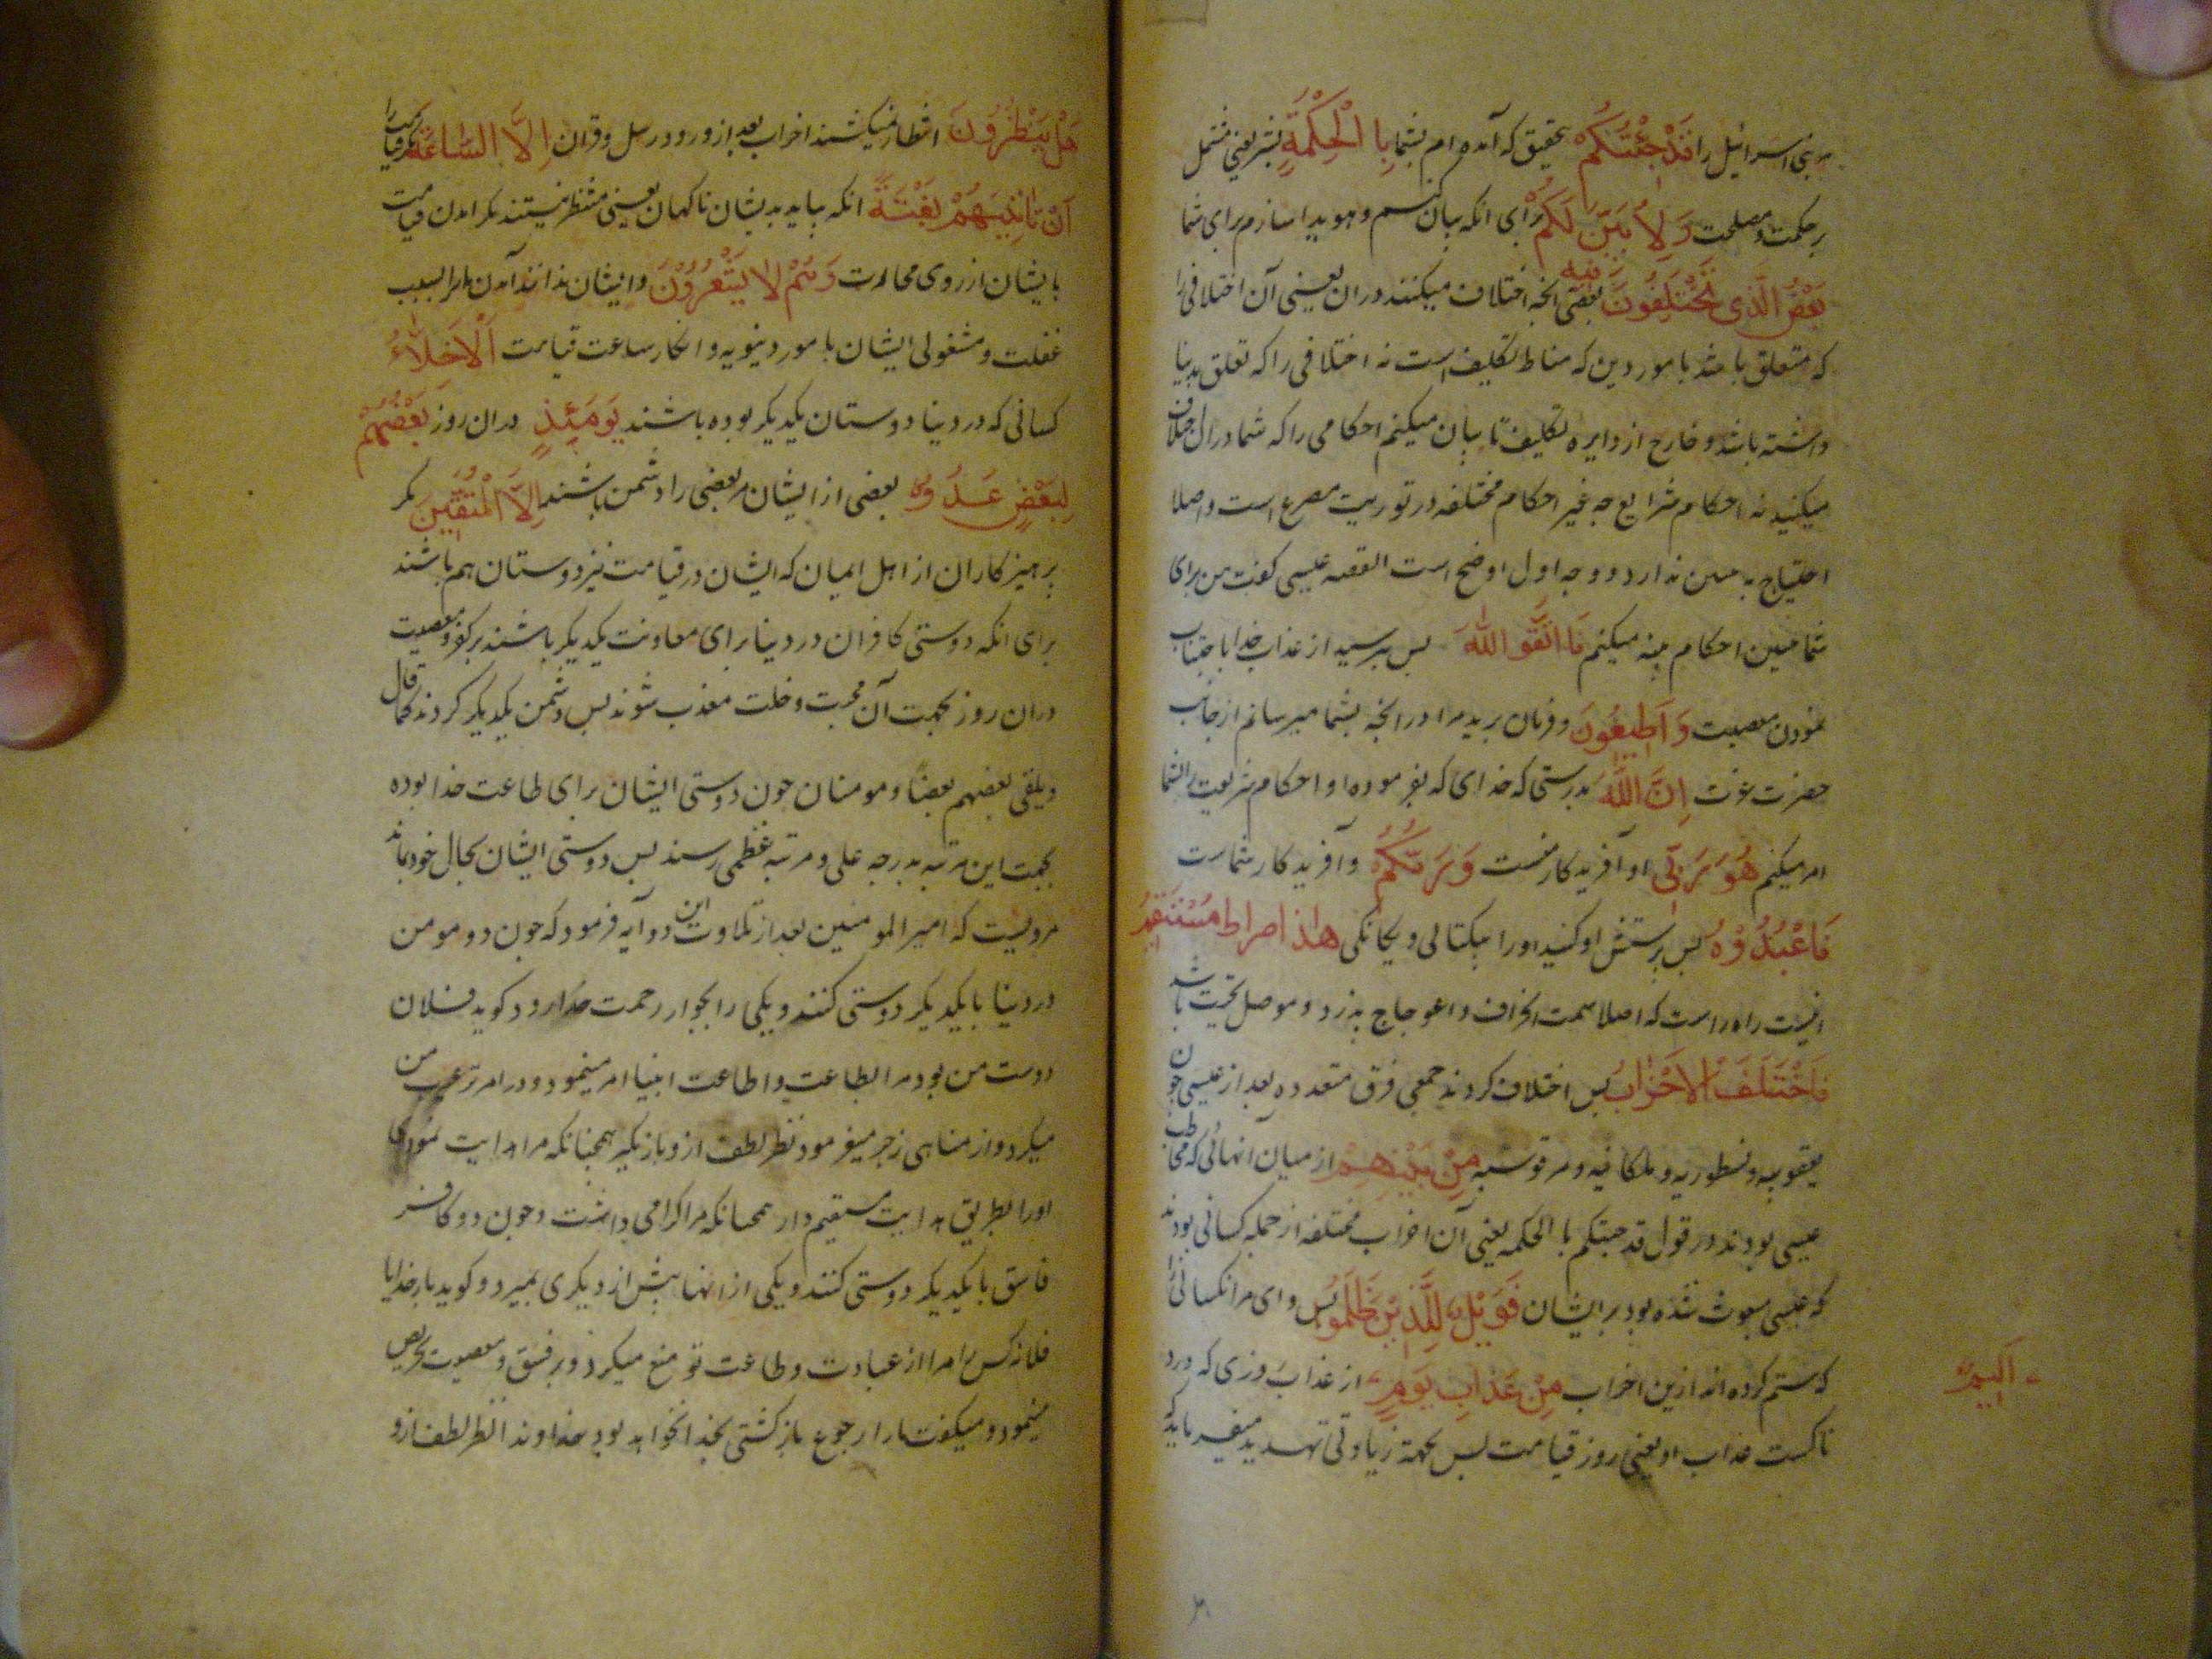 بر بنی اسرائیل را قَدْ جِئْتُكُمْ بتحقیق که آمده ام بشما بِا الْحِكْمَةِ بشر یعنی مشتمل
بر حکمت و مصلحت وَ لِاُبَيِّنَ لَكُمْ برای انکه بیان کنم و هویدا سازم برای شما
بَعْضَ الَّذِى تَخْتَلِفُونَ فِيهِ بعضی انچه اختلاف میکنند دران یعنی آن اختلافی را
که متعلق باشد بامور دین که مناط تکلیف است نه اختلافی را که تعلق بدنیا
داشته باشد و خارج از دایره تکلیف تا بیان میکنم احکامی را که شما دران خلاف
میکنید نه احکام شرایع چه غیر احکام مختلفه در توریت مصرح است و اصلا
احتیاج به مبین ندارد و وجه اول اوضح است القصه عیسی کفت من برای
شما تبیین احکام میکنم فَا اتَّقُوا اللّٰهَ بس بترسید از عذاب خدا باجتناب
نمودن معصیت وَ اَطِيعُونَ و فرمان برید مرا در انچه بشما میرسانم از جانب
حضرت عزت اِنَّ اللّٰهَ بدرستی که خدای که بفرموده او احکام شریعت را بشما
امر میکنم هُوَ رَبِّى او آفریدکار منست وَ رَبُّكُمْ و آفریدکار شماست
فَاعْبُدُوْهُ بس برستش او کنید او را بیکتائی و یکانکی هٰذا صراط مُسْتَقِيْمٌ
اینست راه راست که اصلا سمت انحراف و اعوجاج نبذرد و موصل بجنت باشد
فَاخْتَلَفَ الْاَحْزٰابُ بس اختلاف کردند جمعی فرق متعدده بعد از عیسی چون
یعقوبیه و نسطوریه و ملکائیه و مرقوسیه مِنْ بَيْنِهِمْ از میان آنهائی که مخاطب
عیسی بودند در قول قد جئتکم با الحکمه یعنی آن احزاب مختلفه از جمله کسانی بودند
که عیسی مبعوث شده بود بر ایشان فَوَيْلٌ لِلَّذِيْنَ ظَلَمُوْا بس وای مر انکسانی را
که ستم کرده اند ازین احزاب مِنْ عَذَابِ يَوْمٍ از عذاب روزی که درد
اَلِيمٍ
ناکست عذاب او یعنی روز قیامت بس بجهة زیادتی تهدید میفرماید که
هَلْ يَنْظُرُوْنَ انتظار نمیکشند احزاب بعد از ورود رسل و قران اِلَّا السَّاعَةَ مکر قیامت را
اَنْ تَاْتِيَهُمْ بَغْتَةً انکه بیاید بدیشان ناکهان یعنی منتظر نیستند مکر امدن قیامت
بایشان از روی مجازات وَ هُمْ لَا يَشْعُرُوْنَ و ایشان ندانند آمدن ان را بسبب
غفلت و مشغولی ایشان بامور دنیویه و انکار ساعت قیامت اَلْاَخِلّاءُ
کسانی که در دنیا دوستان یکدیکر بوده باشند يَوْمَئِذٍ دران روز بَعْضُهُمْ
لِبَعْضٍ عَدُوٌّ بعضی از ایشان مر بعضی را دشمن باشند اِلَّا الْمُتَّقِينَ مکر
برهیزکاران از اهل ایمان که ایشان در قیامت نیز دوستان هم باشند
برای انکه دوستی کافران در دنیا برای معاونت یکدیکر باشند بر کفر و معصیت
دران روز بجهت آن محبت و خلت معذب شوند بس دشمن یکدیکر کردند کما قال
و یلقی بعضهم بعضا و مومنان چون دوستی ایشان برای طاعت خدا بوده
بجهت این مرتبه بدرجه علی و مرتبه عظمی رسند بس دوستی ایشان بحال خود بماند
مرویست که امیر المومنین بعد از تلاوت این دو آیه فرمود که چون دو مومن
در دنیا با یکدیکر دوستی کنند و یکی را بجوار رحمت خدا رود کوید فلان
دوست من بود مرا بطاعت و اطاعت انبیا امر مینمود و در امر ترغیب من
میکرد و از مناهی زجر میفرمود نظر لطف ازو باز نکیر همچنانکه مرا هدایت نمودی
او را بطریق هدایت مستقیم دار همچنانکه مرا کرامی داشت و چون دو کافر
فاسق با یکدیکر دوستی کنند و یکی از انها بیش از دیکری بمیرد و کوید بار خدایا
فلانکس مرا از عبادت و طاعت تو منع میکرد و بر فسق و معصیت تحریص
مینمود و میکفت ما را رجوع بازکشتی بخدا نخواهد بود خداوندا نظر لطف ازو